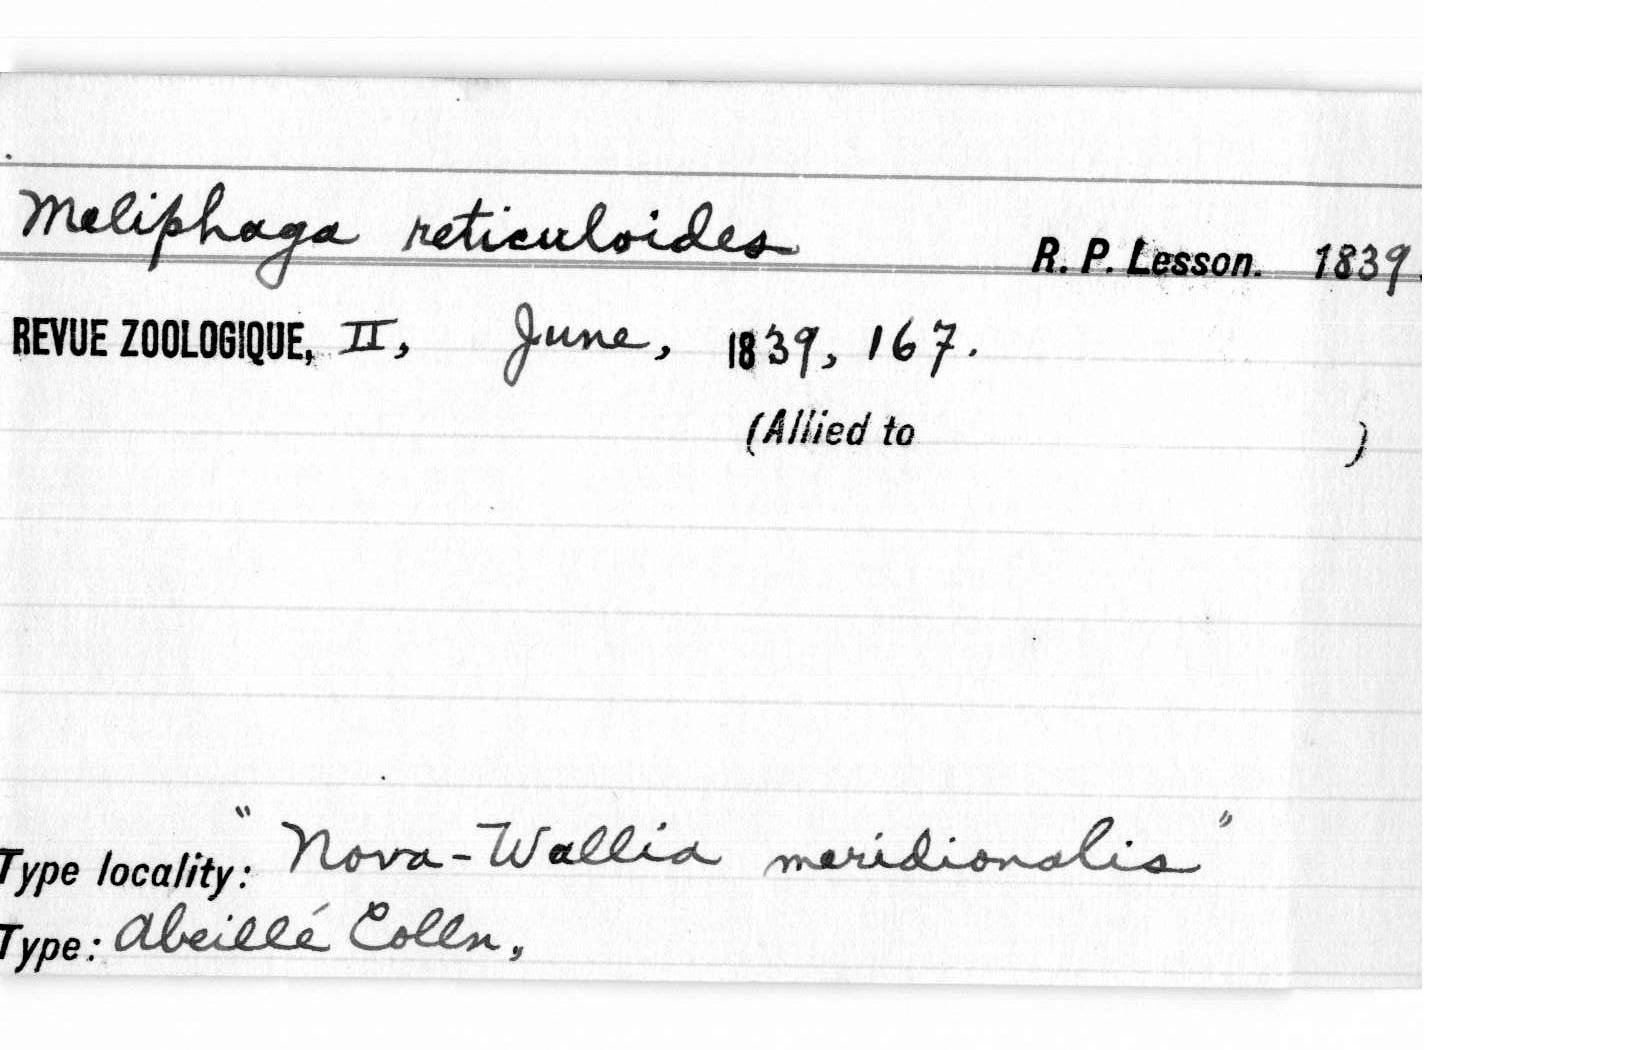 Meliphaga reticuloides R. P. Lesson. 1839.
REVUE ZOOLOGIQUE, II, June, 1839, 167.
(Allied to )
Type locality: "Nova-Wallia meridionalis"
Type: Abeillé Colln,